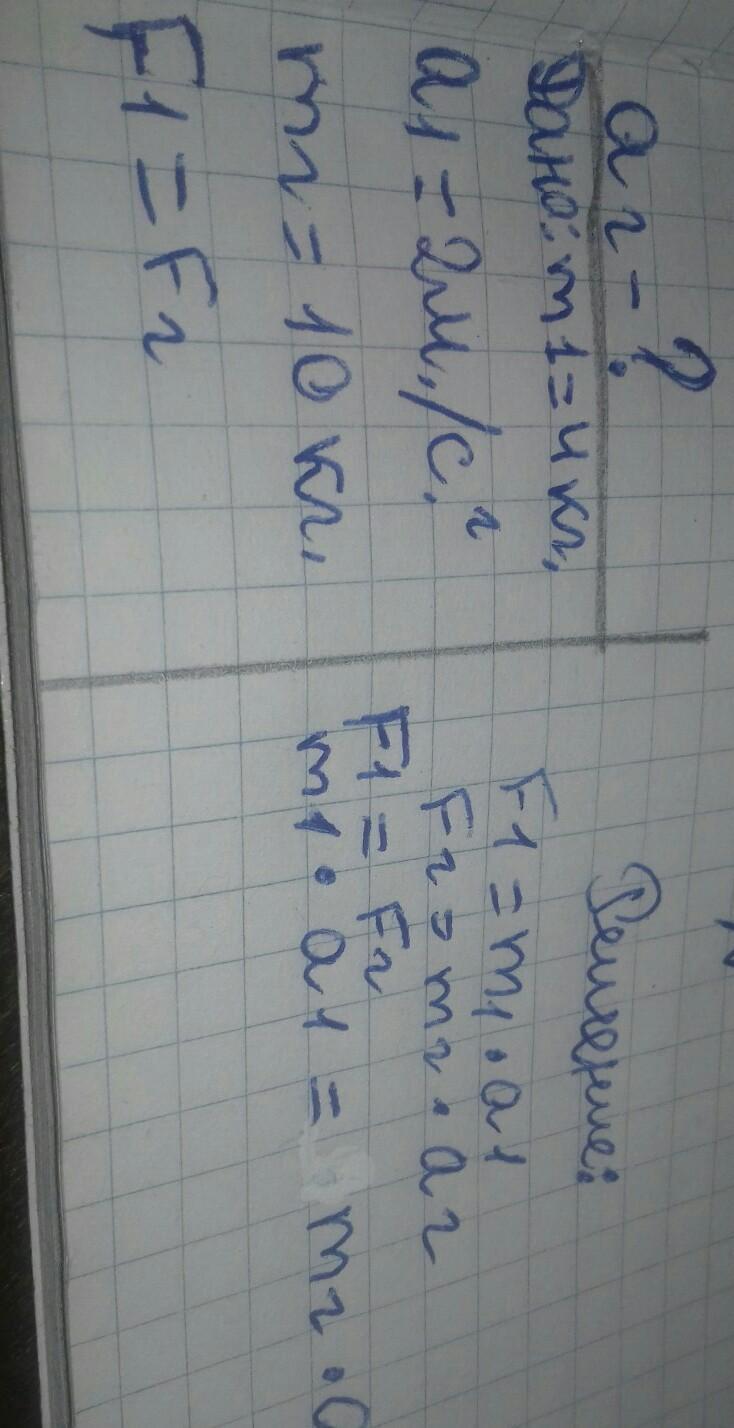 a2 - ?
Дано: m1 = 4 кг,
a1 = 2м,/с,²
m2 = 10 кг,
F1 = F2
Решение:
F1 = m1 · a1
F2 = m2 · a2
F1 = F2
m1 · a1 = m2 ·